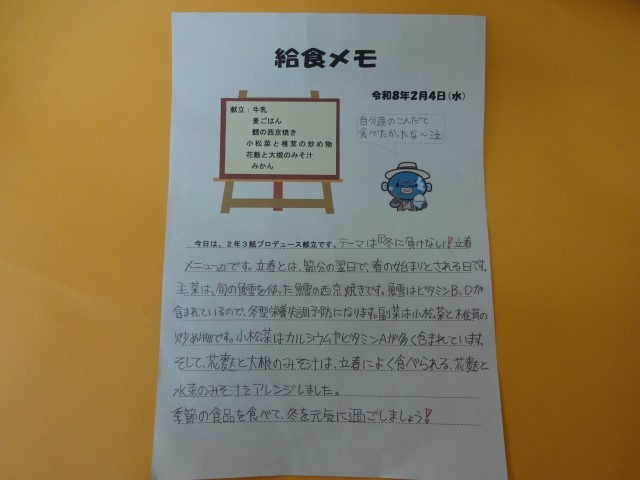 給食メモ
令和8年2月4日(水)
献立：牛乳
麦ごはん
鱈の西京焼き
小松菜と椎茸の炒め物
花麩と大根のみそ汁
みかん
自分達のこんだて
食べたかったな～泣
今日は、2年3組プロデュース献立です。テーマは『冬に負けない!立春
メニュー』です。立春とは、節分の翌日で、春の始まりとされる日です。
主菜は、旬の鱈を使った鱈の西京焼きです。鱈はビタミンB、Dが
含まれているので、冬型栄養失調予防になります。副菜は小松菜と椎茸の
炒め物です。小松菜はカルシウムやビタミンAが多く含まれています。
そして、花麩と大根のみそ汁は、立春によく食べられる、花麩と
水菜のみそ汁をアレンジしました。
季節の食品を食べて、冬を元気に過ごしましょう!